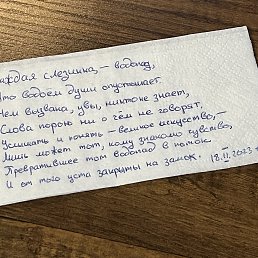 Каждая слезинка, – водопад,
Что водоём души опустошает.
Чем вызвана, увы, никто не знает,
Слова порою ни о чём не говорят.
Услышать и понять – великое искусство, –
Лишь может тот, кому знакомо чувство,
Превратившее тот водопад в поток.
И от того уста закрыты на замок. 18.II.2023